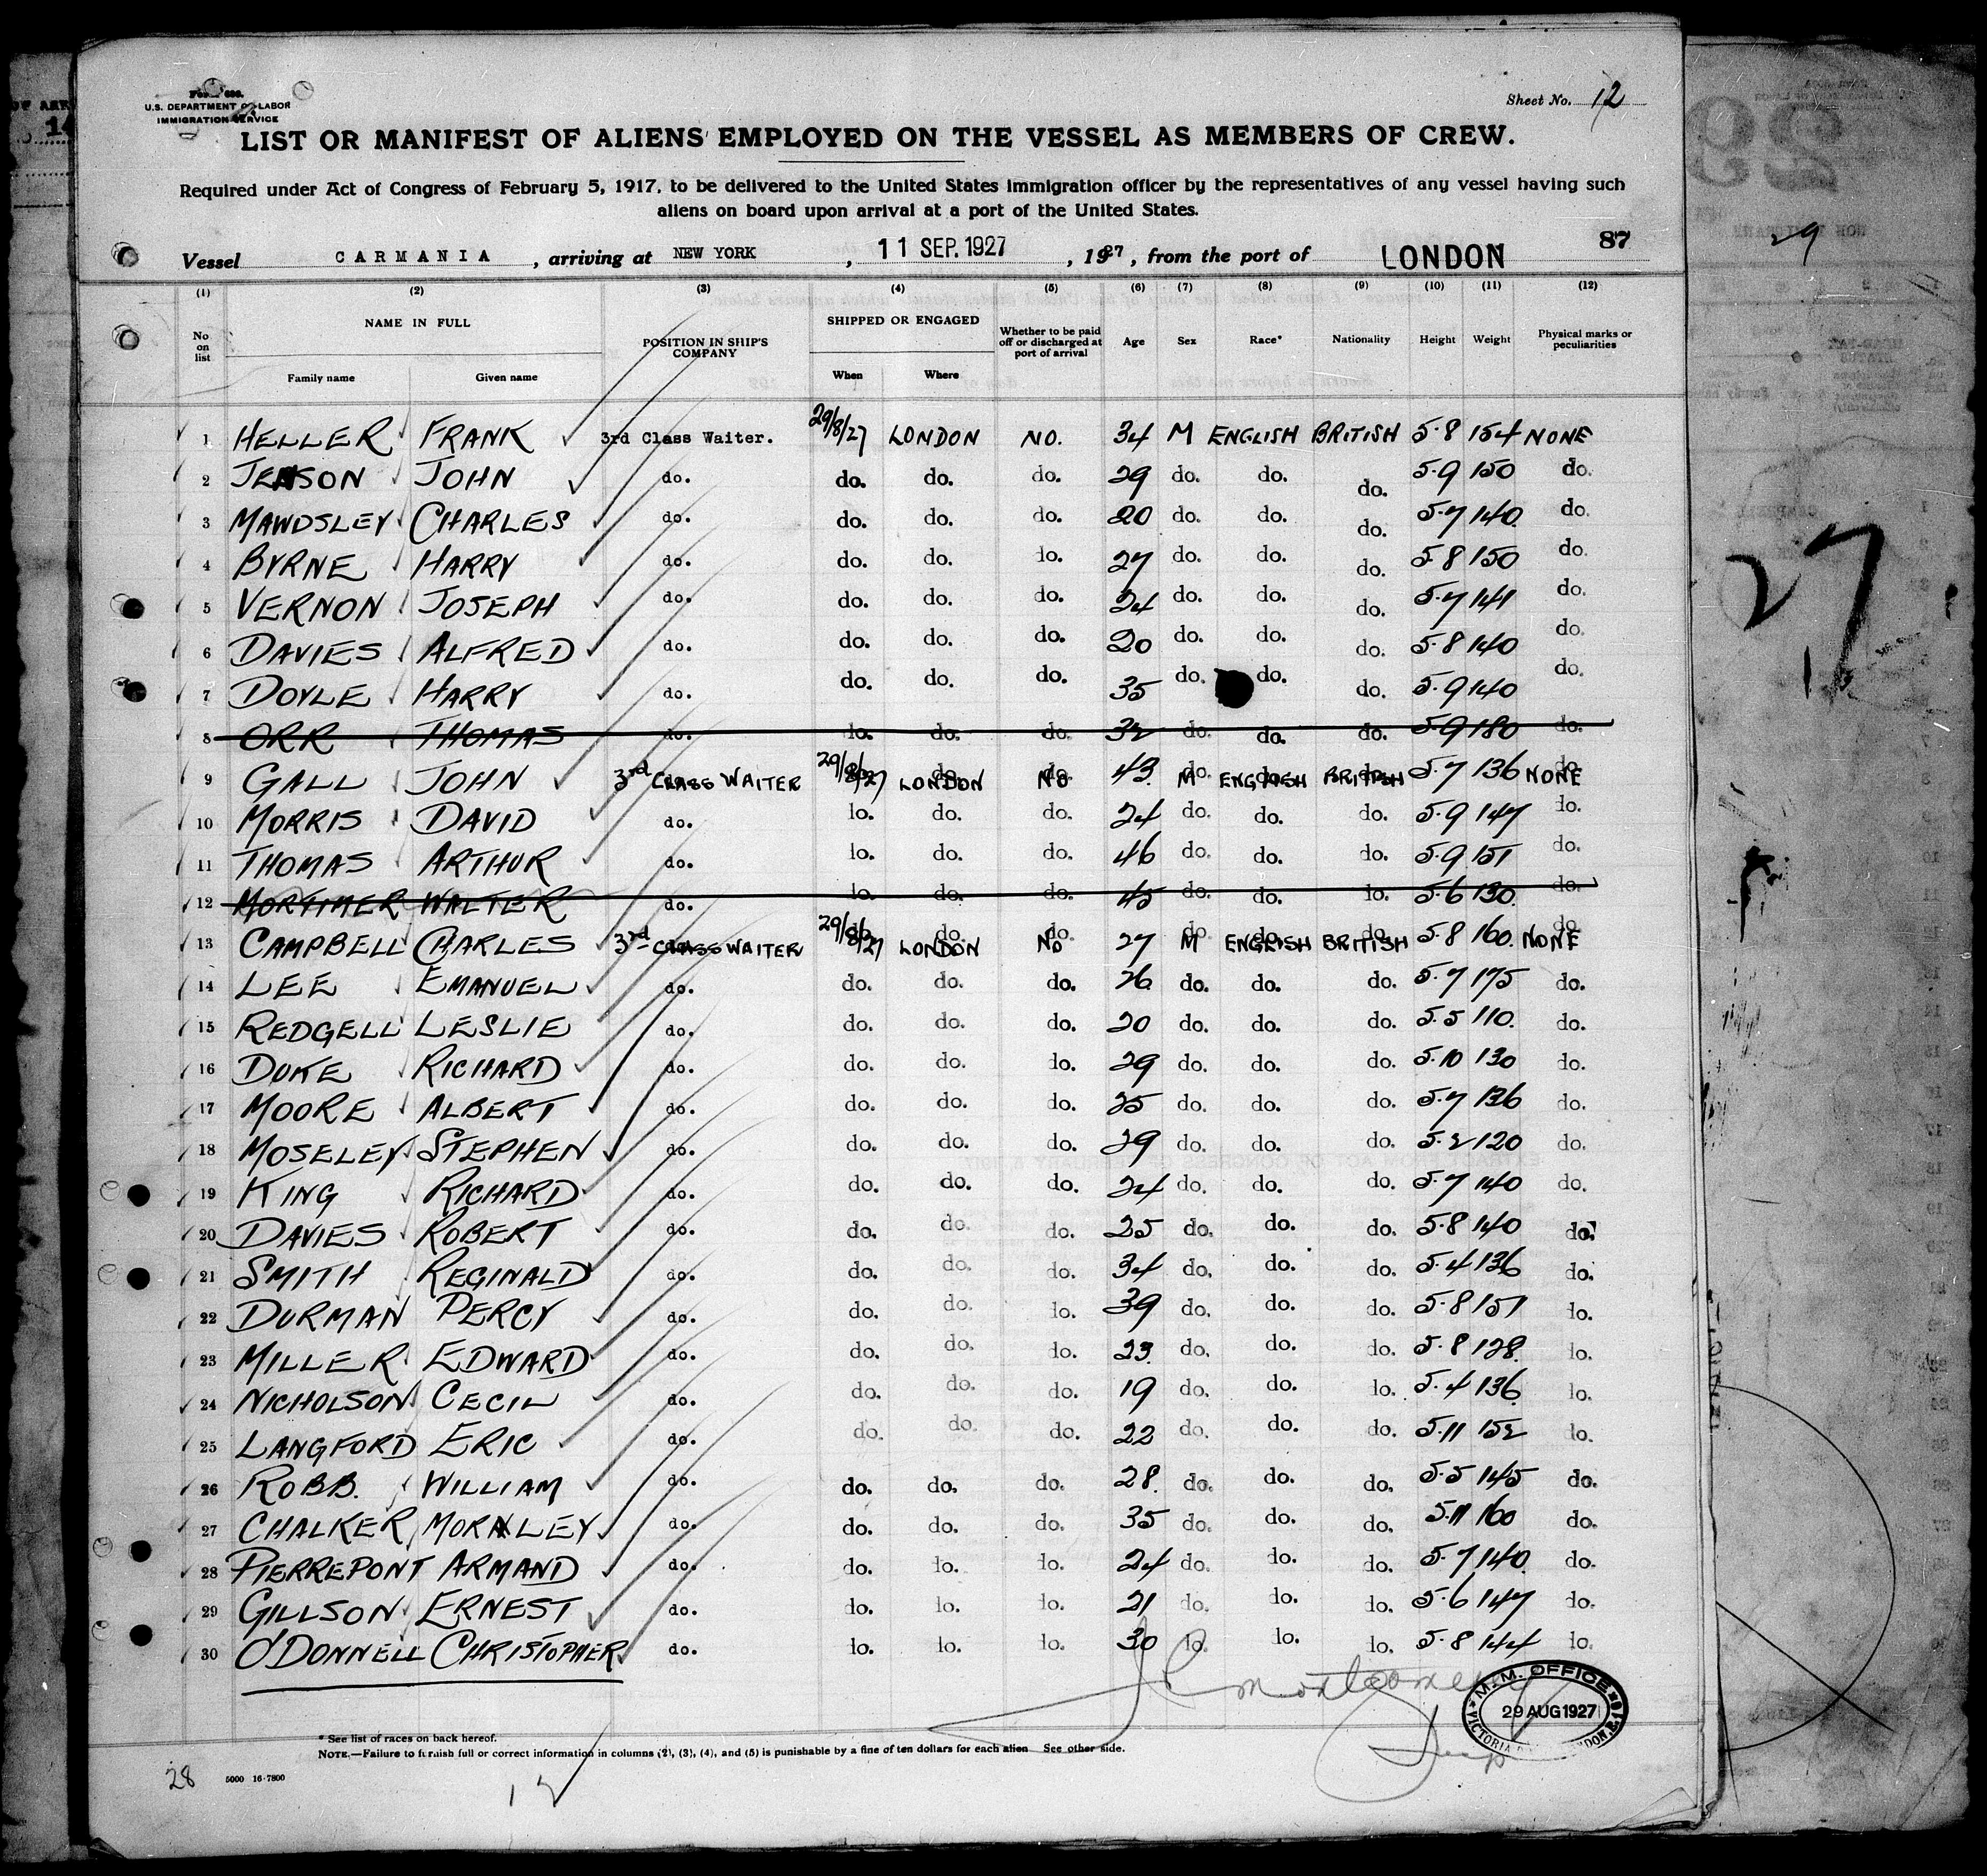 Form 680.
U.S. DEPARTMENT OF LABOR
IMMIGRATION SERVICE
Sheet No. 12
LIST OR MANIFEST OF ALIENS EMPLOYED ON THE VESSEL AS MEMBERS OF CREW.
Required under Act of Congress of February 5, 1917, to be delivered to the United States immigration officer by the representatives of any vessel having such
aliens on board upon arrival at a port of the United States.
87
Vessel CARMANIA, arriving at NEW YORK, 11 SEP. 1927, 1927, from the port of LONDON
(1) (2) (3) (4) (5) (6) (7) (8) (9) (10) (11) (12)
No on list NAME IN FULL Family name Given name POSITION IN SHIP'S COMPANY SHIPPED OR ENGAGED When Where Whether to be paid off or discharged at port of arrival Age Sex Race* Nationality Height Weight Physical marks or peculiarities
1 HELLER FRANK 3rd Class Waiter. 29/8/27 LONDON NO. 34 M ENGLISH BRITISH 5·8 154 NONE
2 JEASON JOHN do. do. do. do. 29 do. do. do. 5·9 150 do.
3 MAWDSLEY CHARLES do. do. do. do. 20 do. do. do. 5·7 140. do.
4 BYRNE HARRY do. do. do. do. 27 do. do. do. 5·8 150 do.
5 VERNON JOSEPH do. do. do. do. 24 do. do. do. 5·7 141 do.
6 DAVIES ALFRED do. do. do. do. 20 do. do. do. 5·8 140 do.
7 DOYLE HARRY do. do. do. do. 35 do. do. do. 5·9 140 do.
8 ORR THOMAS do. do. do. do. 32 do. do. do. 5·9 180 do.
9 GALL JOHN 3rd CLASS WAITER 29/8/27 LONDON NO 43. M ENGLISH BRITISH 5·7 136 NONE
10 MORRIS DAVID do. do. do. do. 24 do. do. do. 5·9 147 do.
11 THOMAS ARTHUR do. do. do. do. 46 do. do. do. 5·9 151 do.
12 MORTIMER WALTER do. do. do. do. 45 do. do. do. 5·6 130. do.
13 CAMPBELL CHARLES 3rd CLASS WAITER 29/8/27 LONDON NO 27 M ENGLISH BRITISH 5·8 160. NONE
14 LEE EMANUEL do. do. do. do. 26 do. do. do. 5·7 175 do.
15 REDGELL LESLIE do. do. do. do. 20 do. do. do. 5·5 110. do.
16 DUKE RICHARD do. do. do. do. 29 do. do. do. 5·10 130 do.
17 MOORE ALBERT do. do. do. do. 25 do. do. do. 5·7 136 do.
18 MOSELEY STEPHEN do. do. do. do. 29 do. do. do. 5·2 120 do.
19 KING RICHARD do. do. do. do. 24 do. do. do. 5·7 140 do.
20 DAVIES ROBERT do. do. do. do. 25 do. do. do. 5·8 140 do.
21 SMITH REGINALD do. do. do. do. 34 do. do. do. 5·4 136 do.
22 DURMAN PERCY do. do. do. do. 39 do. do. do. 5·8 151 do.
23 MILLER EDWARD do. do. do. do. 23. do. do. do. 5·8 128. do.
24 NICHOLSON CECIL do. do. do. do. 19 do. do. do. 5·4 136. do.
25 LANGFORD ERIC do. do. do. do. 22 do. do. do. 5·11 152 do.
26 ROBB. WILLIAM do. do. do. do. 28. do. do. do. 5·5 145 do.
27 CHALKER MORNLEY do. do. do. do. 35 do. do. do. 5·11 160 do.
28 PIERREPONT ARMAND do. do. do. do. 24 do. do. do. 5·7 140. do.
29 GILLSON ERNEST do. do. do. do. 21 do. do. do. 5·6 147 do.
30 O'DONNELL CHRISTOPHER do. do. do. do. 30 do. do. do. 5·8 144 do.
M.M. OFFICE
29 AUG 1927
VICTORIA
* See list of races on back hereof.
NOTE.—Failure to furnish full or correct information in columns (2), (3), (4), and (5) is punishable by a fine of ten dollars for each alien See other side.
28
5000 16-7800
12
29
27